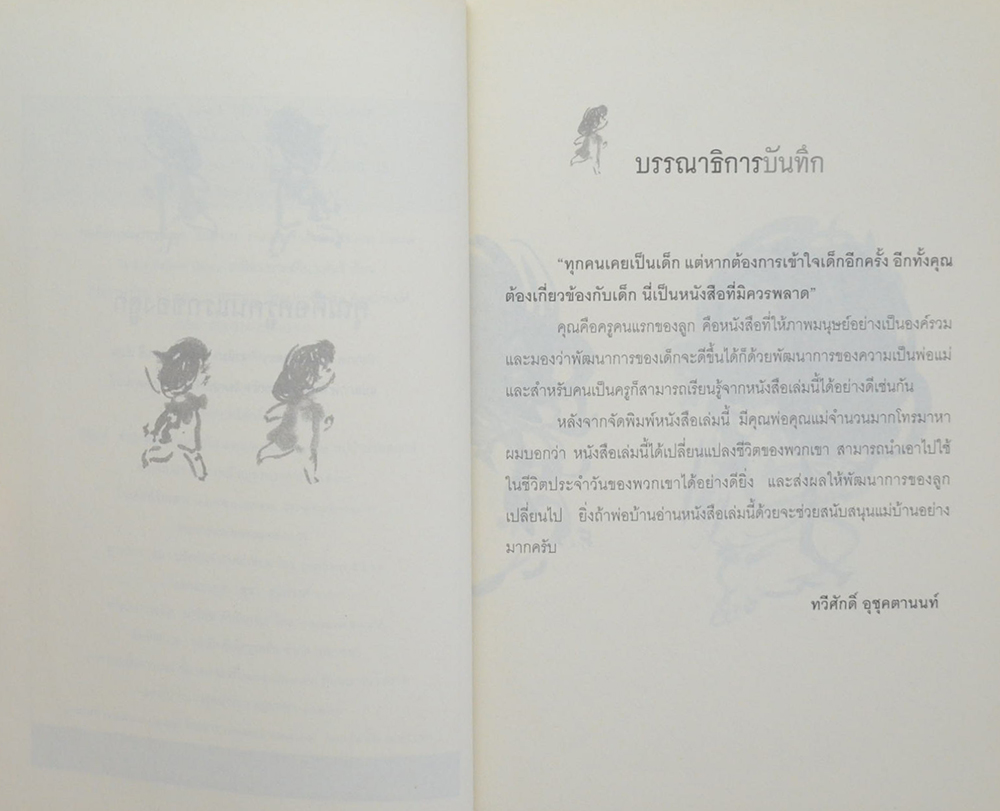 บรรณาธิการบันทึก
“ทุกคนเคยเป็นเด็ก แต่หากต้องการเข้าใจเด็กอีกครั้ง อีกทั้งคุณ
ต้องเกี่ยวข้องกับเด็ก นี่เป็นหนังสือที่มิควรพลาด”
คุณคือครูคนแรกของลูก คือหนังสือที่ให้ภาพมนุษย์อย่างเป็นองค์รวม
และมองว่าพัฒนาการของเด็กจะดีขึ้นได้ก็ด้วยพัฒนาการของความเป็นพ่อแม่
และสำหรับคนเป็นครูก็สามารถเรียนรู้จากหนังสือเล่มนี้ได้อย่างดีเช่นกัน
หลังจากจัดพิมพ์หนังสือเล่มนี้ มีคุณพ่อคุณแม่จำนวนมากโทรมาหา
ผมบอกว่า หนังสือเล่มนี้ได้เปลี่ยนแปลงชีวิตของพวกเขา สามารถนำเอาไปใช้
ในชีวิตประจำวันของพวกเขาได้อย่างดียิ่ง และส่งผลให้พัฒนาการของลูก
เปลี่ยนไป ยิ่งถ้าพ่อบ้านอ่านหนังสือเล่มนี้ด้วยจะช่วยสนับสนุนแม่บ้านอย่าง
มากครับ
ทวีศักดิ์ อุชุคตานนท์